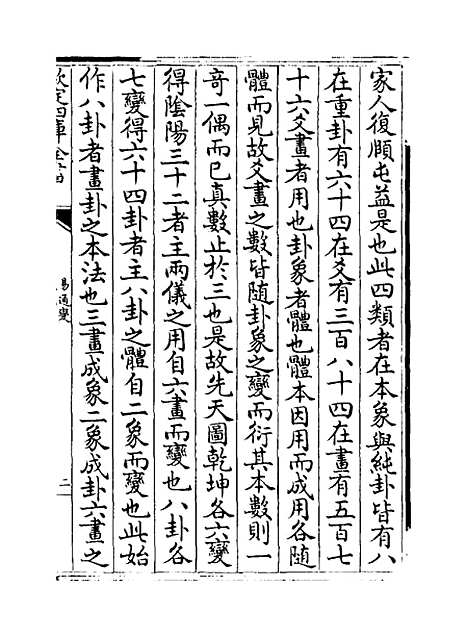 家人復頤屯益是也此四類者在本象與純卦皆有八
在重卦有六十四在爻有三百八十四在畫有五百七
十六爻畫者用也卦象者體也體本因用而成用各隨
體而見故爻畫之數皆隨卦象之變而衍其本數則一
奇一偶而已真數止於三也是故先天圖乾坤各六變
得隂陽三十二者主兩儀之用自六畫而變也八卦各
七變得六十四卦者主八卦之體自二象而變也此始
作八卦者畫卦之本法也三畫成象二象成卦六畫之
欽定四庫全書
易通變
二